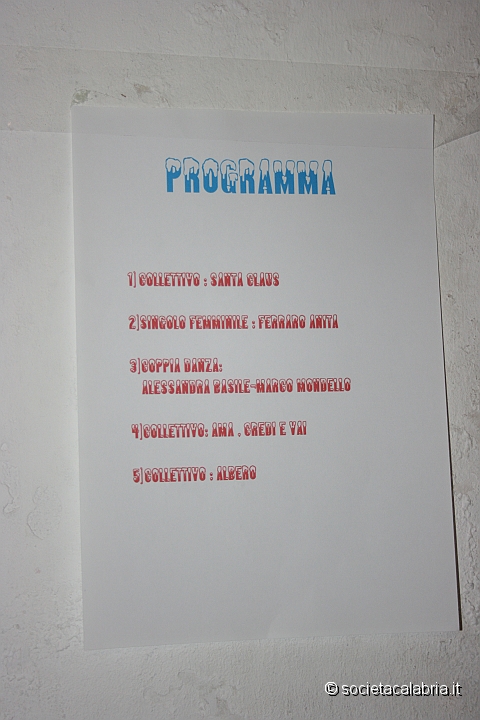 PROGRAMMA
1] COLLETTIVO : SANTA CLAUS
2]SINGOLO FEMMINILE : FERRARO ANITA
3]COPPIA DANZA:
ALESSANDRA BASILE-MARCO MONDELLO
4]COLLETTIVO: AMA , CREDI E VAI
5]COLLETTIVO : ALBERO
© societacalabria.it